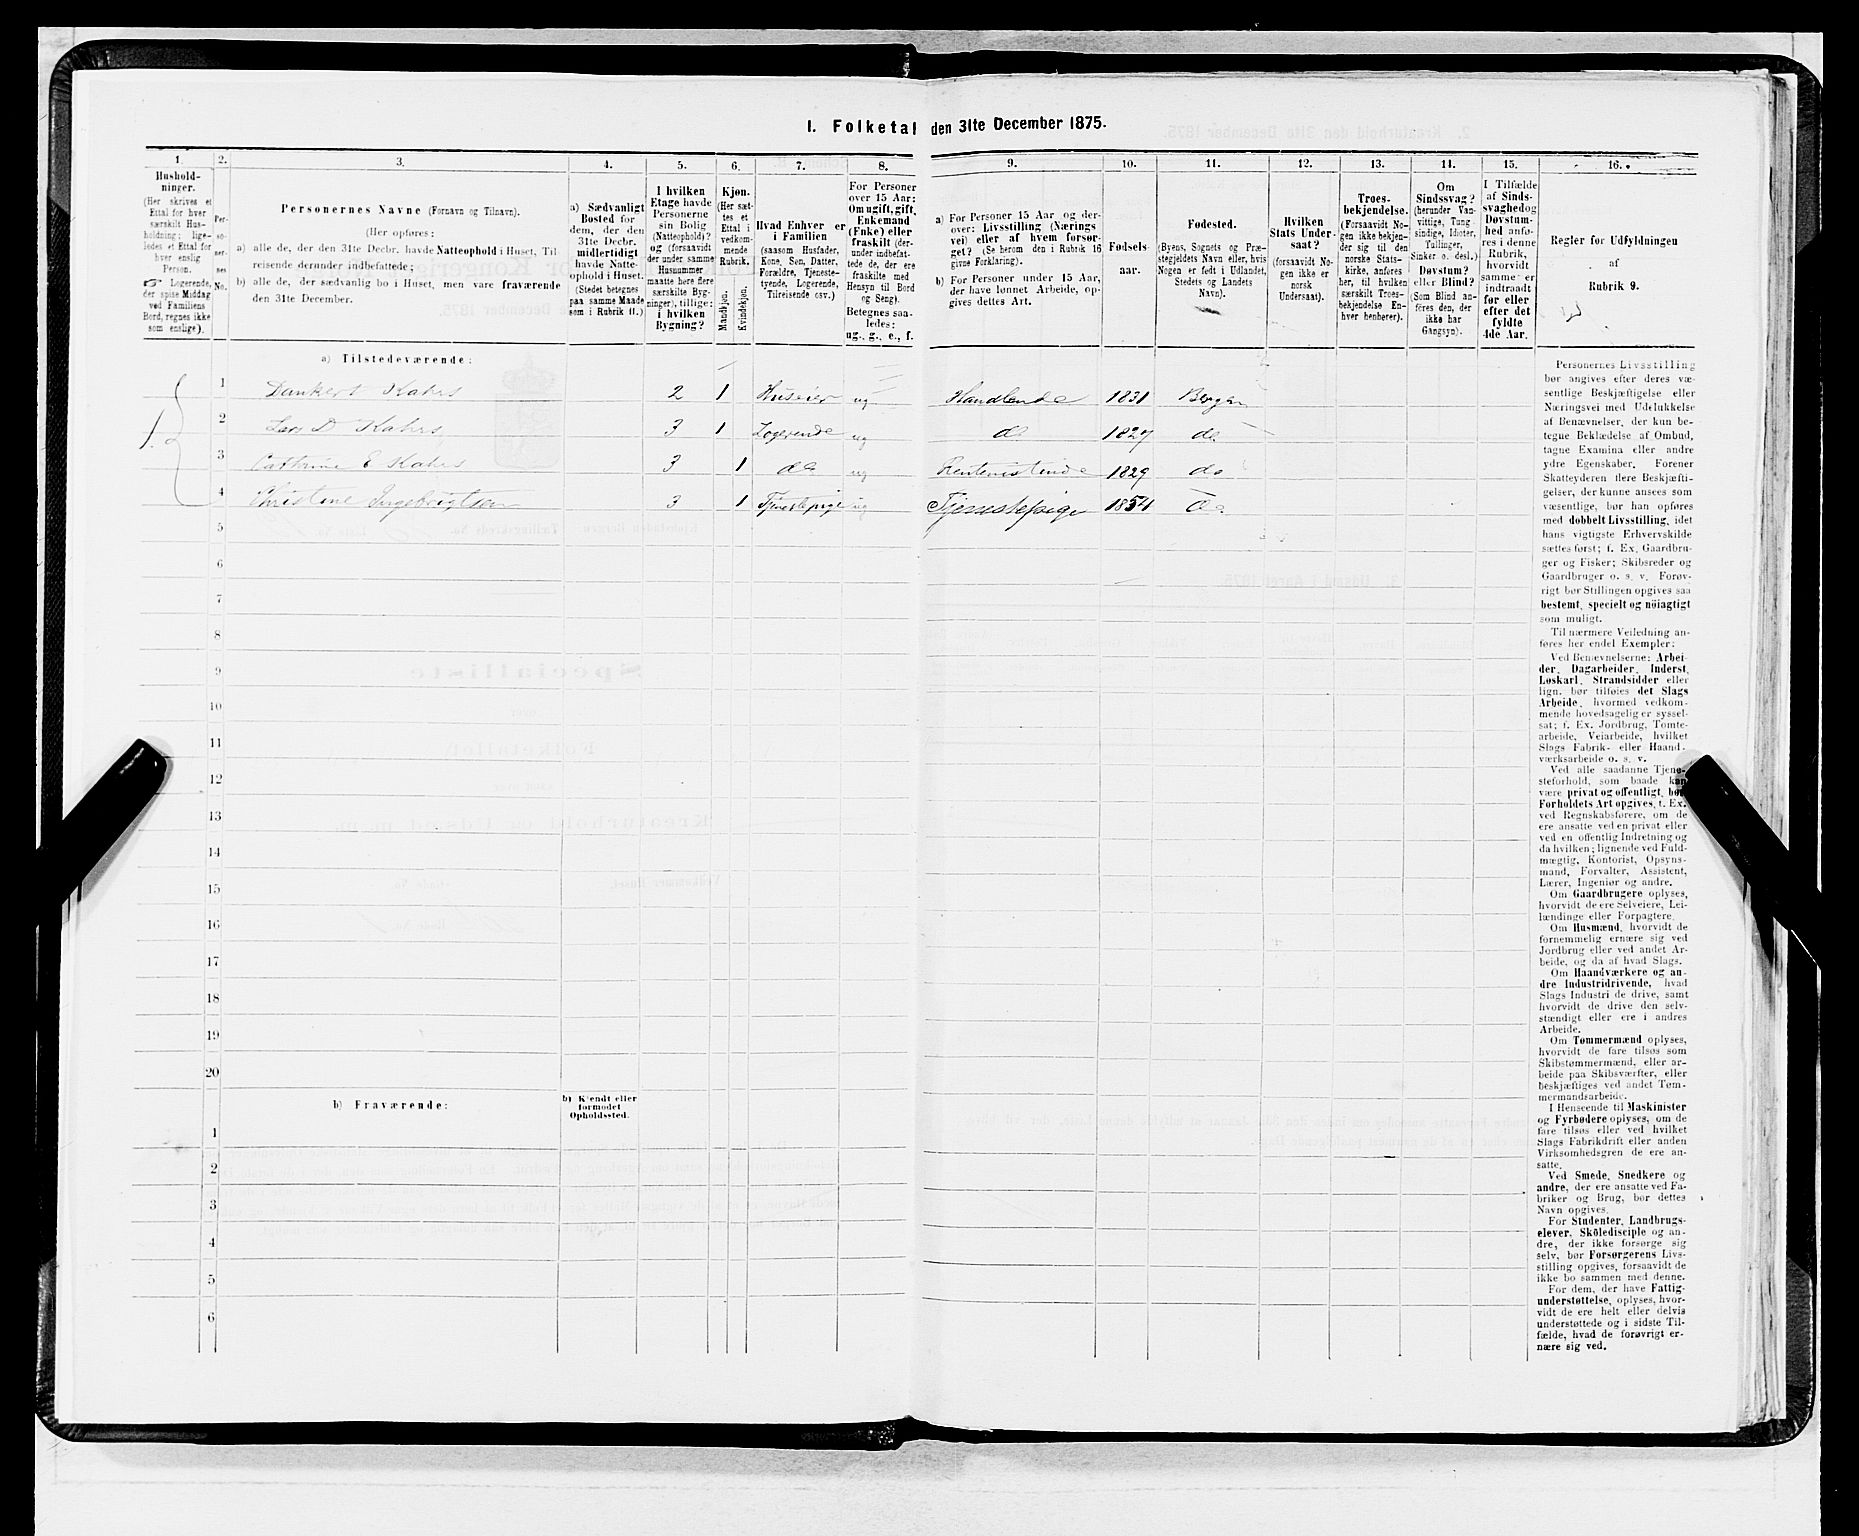 1. Folketal den 31te December 1875.
1.
Hushold-
ninger.
(Her skrives et
Ettal for hver
særskilt Hus-
holdning; lige-
ledes et Ettal for
hver enslig
Person.
☞ Logerende,
der spise Middag
ved Familiens
Bord, regnes ikke
som enslige).
2.
Per-
so-
ner-
nes
No.
3.
Personernes Navne (Fornavn og Tilnavn).
(Her opføres:
a) alle de, der den 31te Decbr. havde Natteophold i Huset, Til
reisende derunder indbefattede;
b) alle de, der sædvanlig bo i Huset, men vare fraværende
den 31te December.
4.
a) Sædvanligt
Bosted for
dem, der den
31te Decbr.
midlertidigt
havde Natte-
ophold i Huset.
(Stedet betegnes
paa samme Maade
som i Rubrik 11.)
5.
I hvilken
Etage havde
Personerne
sin Bolig
(Natteophold)?
og (forsaavidt
der under samme
Husnummer
maatte høre flere
særskilte Byg-
ninger), tillige:
i hvilken
Bygning?
6.
Kjøn.
(Her sæt-
tes et
Ettal i
vedkom-
mende
Rubrik.
Mandkjøn.
Kvindekjøn.
7.
Hvad Enhver er
i Familien
(saasom Husfader,
Kone, Søn, Datter,
Forældre, Tjeneste-
tyende, Logerende,
Tilreisende osv.)
8.
For Personer
over 15 Aar:
Om ugift, gift,
Enkemand
(Enke) eller
fraskilt (der-
under indbefat-
tede de, der ere
fraskilte med
Hensyn til Bord
og Seng).
Betegnes saa-
ledes:
ug., g., e., f.
9.
a) For Personer 15 Aar og der-
over: Livsstilling (Nærings
vei) eller af hvem forsør-
get? (Se herom den i Rubrik 16
givne Forklaring).
b) For Personer under 15 Aar,
der have lønnet Arbeide, op-
gives dettes Art.
10.
Fødsels-
aar.
11.
Fødested.
(Byens, Sognets og Præ-
stegjeldets Navn eller, hvis
Nogen er født i Udlandet,
Stedets og Landets
Navn).
12.
Hvilken
Stats Under-
saat?
(forsaavidt No-
gen ikke er
norsk
Undersaat).
13.
Troes-
bekjendelse.
(Forsaavidt No-
gen ikke bekjen-
der sig til den
norske Stats-
kirke, anføres
her, til hvilken
særskilt Troes-
bekjendelse En-
hver henhører).
14.
Om
Sindssvag?
(herunder Van-
vittige, Tung-
sindige, Idioter,
Tullinger,
Sinker o. desl.)
Døvstum?
eller Blind?
(Som Blind an-
føres den, der
ikke har
Gangsyn).
15.
I Tilfælde
af Sinds-
svaghed og
Døvstum-
hed anfø-
res i denne
Rubrik,
hvorvidt
samme er
indtraadt
før eller
efter det
fyldte
4de Aar.
16.
Regler for Udfyldningen
af
Rubrik 9.
a) Tilstedeværende:
1. 1 Dankert Kahrs 2 1 Huseier ug Handlende 1831 Bergen
2 Lars D Kahrs 3 1 Logerende ug do 1827 do
3 Cathrine E Kahrs 3 1 do ug 1829 do
4 Christine Ingebrigtsen 3 1 Tjenestepige ug Tjenestepige 1854 do
5
6
7
8
9
10
11
12
13
14
15
16
17
18
19
20
b) Fraværende:
b) Kjendt eller
formodet
Opholdssted.
1
2
3
4
5
6
Personernes Livsstilling
bør angives efter deres væ-
sentlige Beskjæftigelse eller
Næringsvei med Udelukkelse
af Benævnelser, der kun be-
tegne Beklædelse af Ombud,
tagne Examina eller andre
ydre Egenskaber. Forener
Skatteyderen flere Beskjæfti-
gelser, der kunne ansees som
væsentlige, bør han opføres
med dobbelt Livsstilling, idet
hans vigtigste Erhvervskilde
sættes først; f. Ex. Gaardbru-
ger og Fisker; Skibsreder og
Gaardbruger o. s. v. Forøv-
rigt bør Stillingen opgives saa
bestemt, specielt og nöiagtigt
som muligt.
Til nærmere Veiledning an-
føres her endel Exempler:
Ved Benævnelserne: Arbei-
der, Dagarbeider, Inderst,
Løskarl, Strandsidder eller
lign. bør tilføies det Slags
Arbeide, hvormed vedkom-
mende hovedsagelig er syssel-
sat; f. Ex. Jordbrug, Tomte-
arbeide, Veiarbeide, hvilket
Slags Fabrik- eller Haand-
værksarbeide o. s. v.
Ved alle saadanne Tjene-
steforhold, som baade kan
være privat og offentligt, bør
Forholdets Art opgives, t. Ex.
ved Regnskabsførere, om de
ere ansatte ved en privat eller
ved en offentlig Indretning og
da hvilken; lignende ved Fuld-
mægtig, Kontorist, Opsyns-
mand, Forvalter, Assistent,
Lærer, Ingeniør og andre.
Om Gaardbrugere oplyses,
hvorvidt de ere Selveiere, Lei-
lændinge eller Forpagtere.
Om Husmænd, hvorvidt de
fornemmelig ernære sig ved
Jordbrug eller ved andet Ar-
beide, og da af hvad Slags.
Om Haandværkere og an-
dre Industridrivende, hvad
Slags Industri de drive, samt
hvorvidt de drive den selv-
stændigt eller ere i andres
Arbeide.
Om Tømmermænd oplyses,
hvorvidt de fare tilsøs som
Skibstømmermænd, eller ar-
beide paa Skibsværfter, eller
beskjæftiges ved andet Tøm-
mermandsarbeide.
I Henseende til Maskinister
og Fyrbødere oplyses, om de
fare tilsøs eller ved hvilket
Slags Fabrikdrift eller anden
Virksomhedsgren de ere an-
satte.
Ved Smede, Snedkere og
andre, der ere ansatte ved Fa-
briker og Brug, bør dettes
Navn opgives.
For Studenter, Landbrugs-
elever, Skôledisciple og an-
dre, der ikke forsørge sig
selv, bør Forsørgerens Livs-
stilling opgives, forsaavidt de
ikke bo sammen med denne.
For dem, der have Fattig-
understøttelse, oplyses, hvor-
vidt de ere helt eller delvis
understøttede og i sidste Til-
fælde, hvad de forøvrigt er-
nære sig ved.